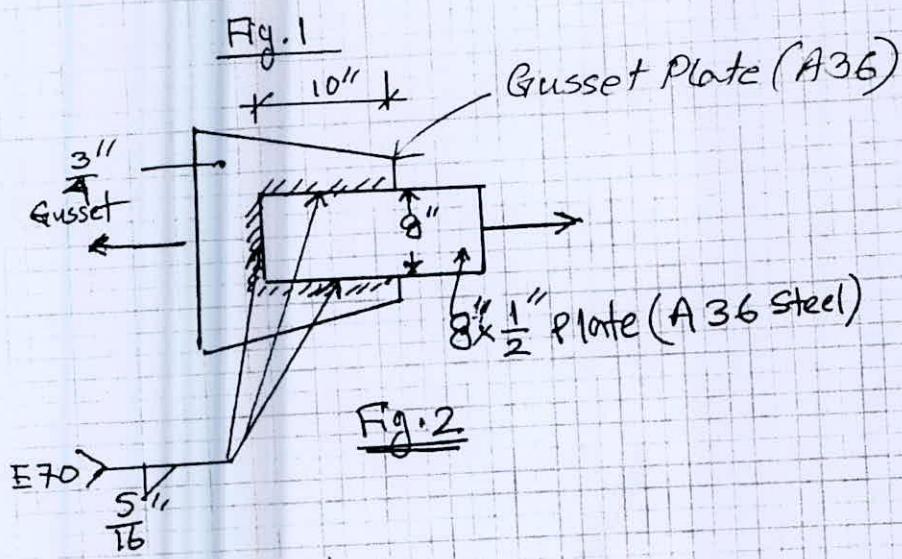 Fig.1
10"
Gusset Plate (A36)
3"
4
Gusset
8"
8"x 1/2" Plate (A 36 Steel)
Fig.2
E70
5"
16